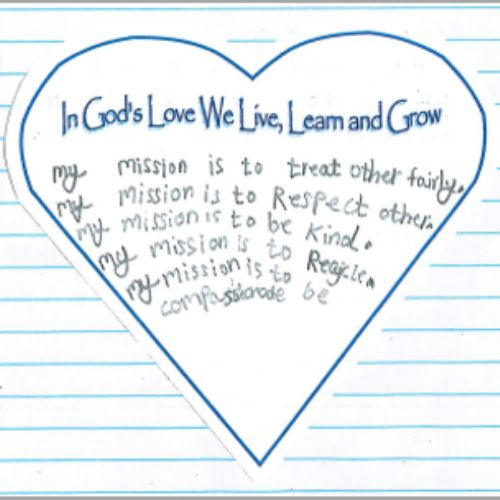 In God's Love We Live, Learn and Grow
my mission is to treat other fairly.
my mission is to Respect other.
my mission is to be kind.
my mission is to Recycle.
my mission is to
compassionade be